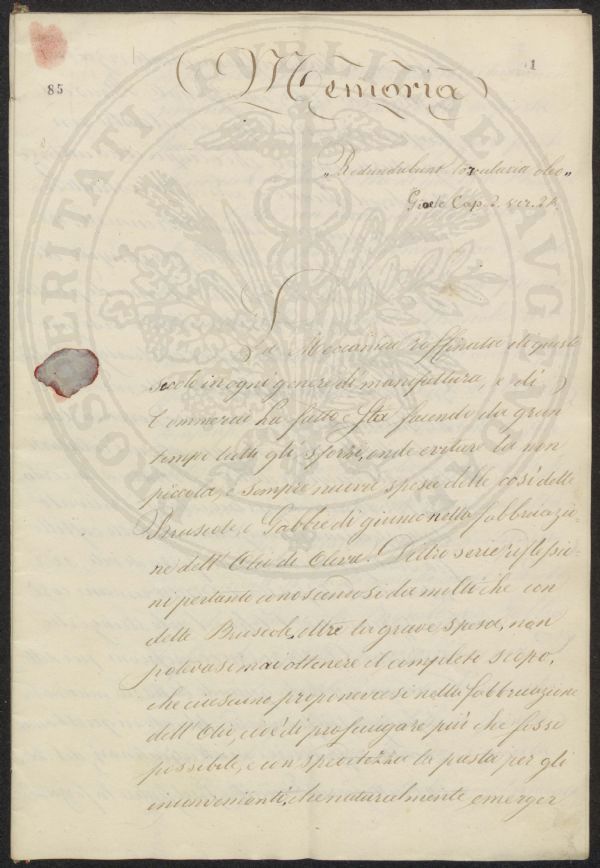 85
1
Memoria
„Redundabunt torcularia oleo„
Gioele Cap. 2. ver. 24.
La Meccanica raffinata di questo
secolo in ogni genere di manifattura, e di
Commercio ha fatto e sta facendo da gran
tempo tutti gli sforzi, onde evitare la non
piccola, e sempre nuova spesa delle così dette
Bruscole, e Gabbie di giunco nella fabbricazio-
ne dell' Olio di Oliva. Dietro serie riflessio-
ni pertanto conoscendosi da molti che con
dette Bruscole, oltre la grave spesa, non
potevasi mai ottenere il completo scopo,
che ciascuno proponevasi nella fabbricazione
dell' Olio, cioè di prosciugare più che fosse
possibile, e con speditezza la pasta per gli
inconvenienti, che naturalmente emerger
PROSPERITATI PUBLICAE AUGENDAE